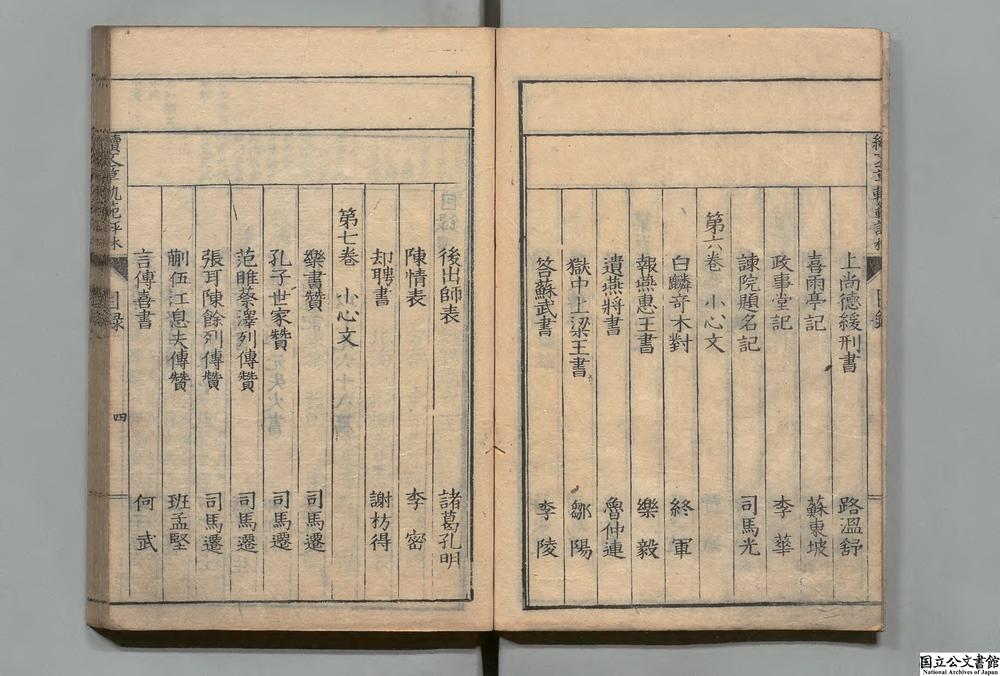 上尚德緩刑書 路溫舒
喜雨亭記 蘇東坡
政事堂記 李華
諫院題名記 司馬光
第六卷 小心文
白麟奇木對 終軍
報燕惠王書 樂毅
遺燕將書 魯仲連
獄中上梁王書 鄒陽
答蘇武書 李陵
後出師表 諸葛孔明
陳情表 李密
却聘書 謝枋得
第七卷 小心文
樂書贊 司馬遷
孔子世家贊 司馬遷
范睢蔡澤列傳贊 司馬遷
張耳陳餘列傳贊 司馬遷
蒯伍江息夫傳贊 班孟堅
言傳喜書 何武
續文章軌範評林 目録 四
国立公文書館
National Archives of Japan